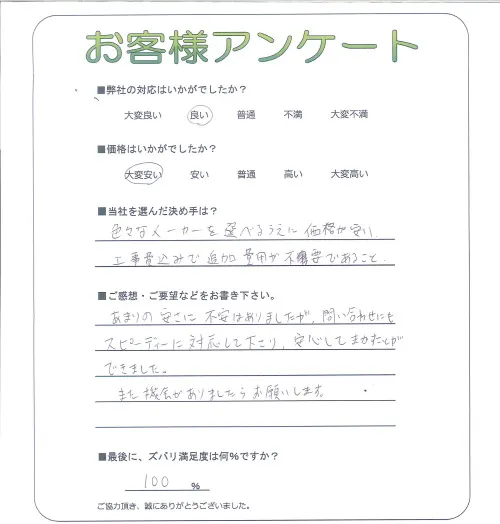 お客様アンケート
■弊社の対応はいかがでしたか？
大変良い 良い 普通 不満 大変不満
■価格はいかがでしたか？
大変安い 安い 普通 高い 大変高い
■当社を選んだ決め手は？
色々なメーカーを選べるうえに価格が安い.
工事費込みで追加費用が不必要であること.
■ご感想・ご要望などをお書き下さい。
あまりの安さに不安はありましたが、問い合わせにも
スピーディーに対応して下さり、安心してまかせることが
できました。
また機会がありましたらお願いします
■最後に、ズバリ満足度は何%ですか？
100 %
ご協力頂き、誠にありがとうございました。